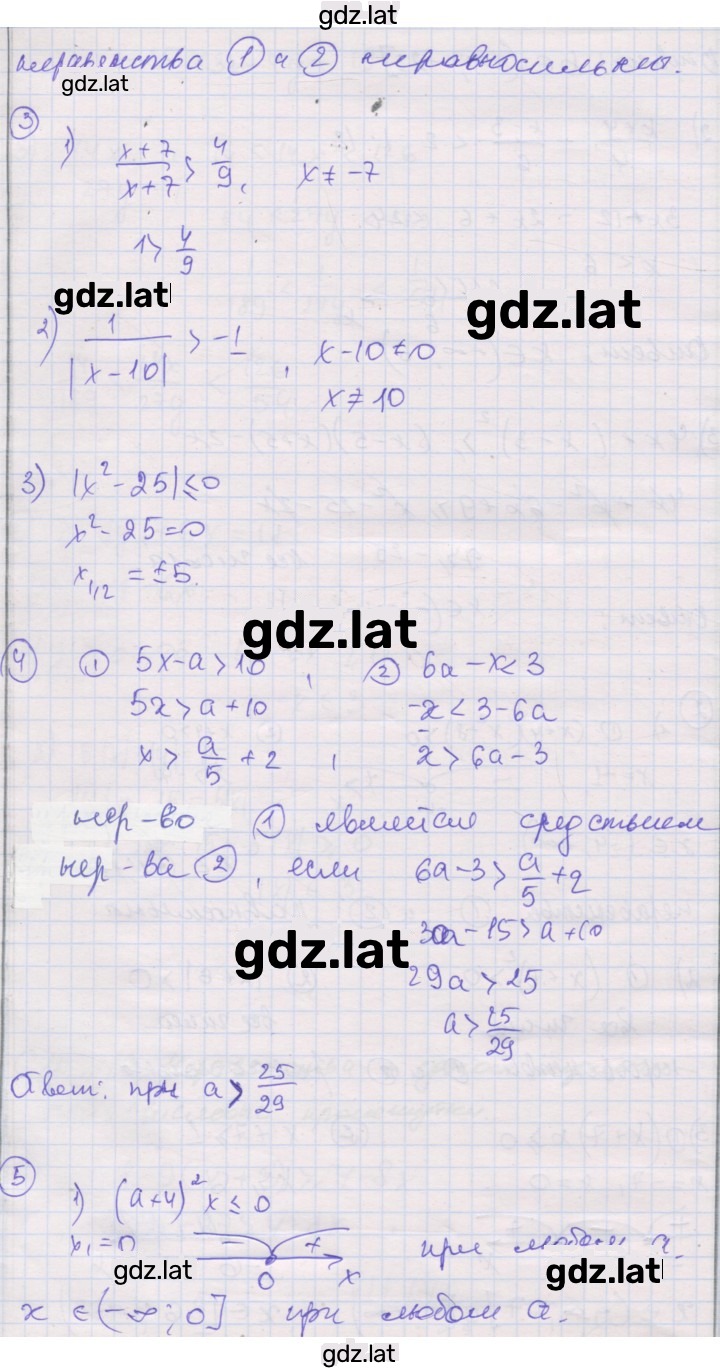 gdz.lat
неравенства ① и ② неравносильны.
gdz.lat
③
1) x+7/x+7 > 4/9, x ≠ -7
1 > 4/9
gdz.lat
gdz.lat
2) 1/|x-10| > -1, x-10 ≠ 0
x ≠ 10
3) |x²-25| ≤ 0
x²-25=0
x₁,₂ = ±5.
gdz.lat
④ ① 5x-a > 10, ② 6a-x < 3
5x > a+10 -x < 3-6a
x > a/5 + 2, x > 6a-3
нер-во ① является следствием
нер-ва ②, если 6a-3 > a/5 + 2
30a-15 > a+10
gdz.lat
29a > 25
a > 25/29
Ответ: при a > 25/29
⑤
1) (a+4)² x ≤ 0
x₁=0 - + при любом a.
gdz.lat
gdz.lat
0 x
x ∈ (-∞; 0] при любом a.
gdz.lat